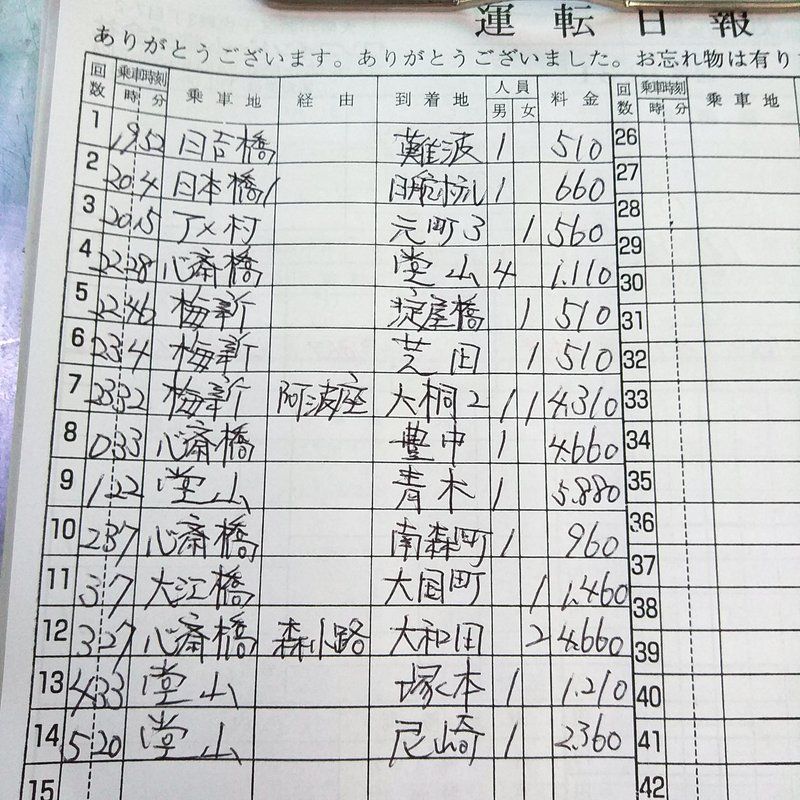 運転日報
ありがとうございます。ありがとうございました。お忘れ物は有り
回数 乗車時刻 時 分 乗車地 経由 到着地 人員 男 女 料金 回数 乗車時刻 時 分 乗車地
1 19 52 日吉橋 難波 1 510 26
2 20 4 日本橋1 1 660 27
3 20 15 アメ村 元町3 1 560 28
4 22 28 心斎橋 堂山 4 1.110 29
5 22 46 梅新 淀屋橋 1 510 30
6 23 4 梅新 芝田 1 510 31
7 23 32 梅新 阿波座 大桐2 1 1 4.310 32
8 0 33 心斎橋 豊中 1 4.660 33
9 1 22 堂山 青木 1 5.880 34
10 2 37 心斎橋 南森町 1 960 35
11 3 7 大江橋 大国町 1 1.460 36
12 3 27 心斎橋 森小路 大和田 2 4.660 37
13 4 33 堂山 塚本 1 1.210 38
14 5 20 堂山 尼崎 1 2.360 39
15 40
41
42